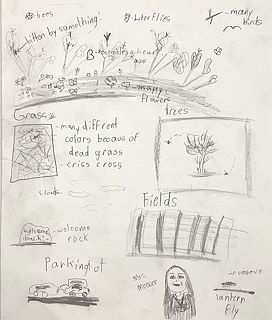 bees
butterflies
many
birds
bitten by something!
B - Resembles a heart
many
flowers
Grass
trees
- many diffrent
colors becaus of
dead grass
- criss cross
clouds
Fields
welcome
back!
- welcome
rock
Parking lot
Mrs
Mercer
invasive
lantern
fly